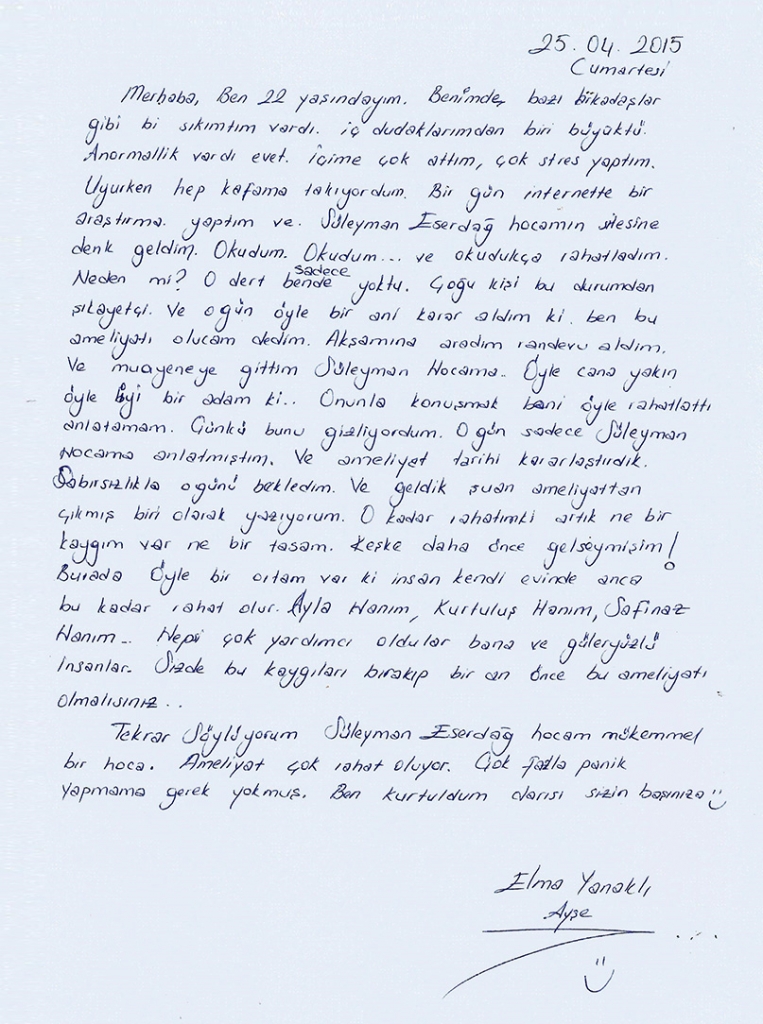 25.04.2015
Cumartesi
Merhaba, Ben 22 yaşındayım. Benimde, bazı arkadaşlar
gibi bi sıkımtım vardı. iç dudaklarımdan biri büyüktü.
Anormallik vardı evet. içime çok attım, çok stres yaptım.
Uyurken hep kafama takıyordum. Bir gün internette bir
araştırma yaptım ve. Süleyman Eserdağ hocamın sitesine
denk geldim. Okudum. Okudum... ve okudukça rahatladım.
Neden mi? O dert sadece bende yoktu. Çoğu kişi bu durumdan
şikayetçi. Ve o gün öyle bir ani karar aldım ki. ben bu
ameliyatı olucam dedim. Akşamına aradım randevu aldım.
Ve muayeneye gittim Süleyman Hocama.. Öyle cana yakın
öyle iyi bir adam ki.. Onunla konuşmak beni öyle rahatlattı
anlatamam. Çünkü bunu gizliyordum. O gün sadece Süleyman
Hocama anlatmıştım. Ve ameliyat tarihi kararlaştırdık.
Sabırsızlıkla o günü bekledim. Ve geldik şuan ameliyattan
çıkmış biri olarak yazıyorum. O kadar rahatımki artık ne bir
kaygım var ne bir tasam. Keşke daha önce gelseymişim!
Burada Öyle bir ortam var ki insan kendi evinde anca
bu kadar rahat olur. Ayla Hanım, Kurtuluş Hanım, Safinaz
Hanım... Hepsi çok yardımcı oldular bana ve güleryüzlü
insanlar. Sizde bu kaygıları bırakıp bir an önce bu ameliyatı
olmalısınız..
Tekrar Söylüyorum Süleyman Eserdağ hocam mükemmel
bir hoca. Ameliyat çok rahat oluyor. Çok fazla panik
yapmama gerek yokmuş. Ben kurtuldum darısı sizin başınıza
Elma Yanaklı
Ayşe
...